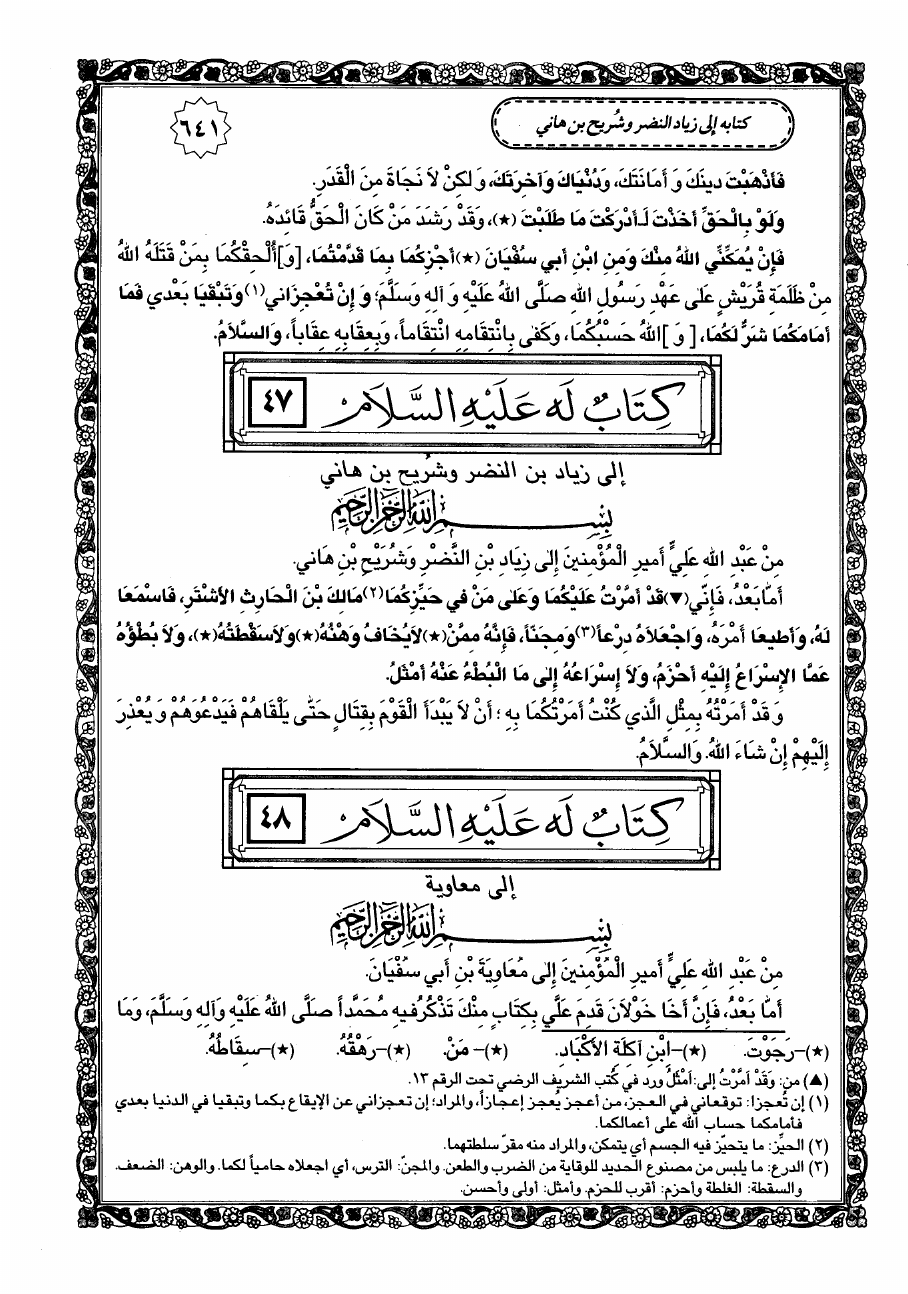 كتابه إلى زياد النضر وشُريح بن هاني
٦٤١
فَأَذْهَبْتَ دينَكَ وَ أَمَانَتَكَ، وَدُنْيَاكَ وَآخِرَتَكَ، وَ لكِنْ لاَ نَجَاةَ مِنَ الْقَدَرِ.
وَلَوْ بِالْحَقِّ أَخَذْتَ لَأَدْرَكْتَ مَا طَلَبْتَ (★)، وَقَدْ رَشَدَ مَنْ كَانَ الْحَقُّ قَائِدَهُ.
فَإِنْ يُمَكِّنِّي اللهُ مِنْكَ وَمِنِ ابْنِ أَبي سُفْيَانَ (★) أَجْزِكُمَا بِمَا قَدَّمْتُمَا، [وَ] أُلْحِقْكُمَا بِمَنْ قَتَلَهُ اللهُ
مِنْ ظَلَمَةِ قُرَيْشٍ عَلى عَهْدِ رَسُولِ اللهِ صَلَّى اللهُ عَلَيْهِ وَ آلِهِ وَسَلَّمَ؛ وَ إِنْ تُعْجِزَاني (١) وَتَبْقَيَا بَعْدي فَمَا
أَمَامَكُمَا شَرٌّ لَكُمَا، [ وَ ] اللهُ حَسْبُكُمَا، وَكَفى بِانْتِقَامِهِ انْتِقَاماً، وَبِعِقَابِهِ عِقَاباً، وَالسَّلاَمُ.
كِتَابٌ لَه عَلَيْهِ السَّلاَم
٤٧
إلى زياد بن النضر وشُريح بن هاني
بِسْمِ اللهِ الرَّحْمٰنِ الرَّحيمِ
مِنْ عَبْدِ اللهِ عَلِيٍّ أَميرِ الْمُؤْمِنينَ إِلى زِيَادِ بْنِ النَّضْرِ وَشُرَيْحِ بْنِ هَاني.
أَمَّا بَعْدُ، فَإِنّي (▼) قَدْ أَمَّرْتُ عَلَيْكُمَا وَعَلى مَنْ في حَيِّزِكُمَا (٢) مَالِكَ بْنَ الْحَارِثِ الأَشْتَرَ، فَاسْمَعَا
لَهُ، وَأَطيعَا أَمْرَهُ، وَاجْعَلاَهُ دِرْعاً (٣) وَمِجَنّاً، فَإِنَّهُ مِمَّنْ (★) لاَيُخَافُ وَهْنُهُ (★) وَلاَسَقْطَتُهُ (★)، وَلاَ بُطْؤُهُ
عَمَّا الإِسْرَاعُ إِلَيْهِ أَحْزَمُ، وَلاَ إِسْرَاعُهُ إِلى مَا الْبُطْءُ عَنْهُ أَمْثَلُ.
وَ قَدْ أَمَرْتُهُ بِمِثْلِ الَّذي كُنْتُ أَمَرْتُكُمَا بِهِ ؛ أَنْ لاَ يَبْدَأَ الْقَوْمَ بِقِتَالٍ حَتّى يَلْقَاهُمْ فَيَدْعُوَهُمْ وَ يُعْذِرَ
إِلَيْهِمْ إِنْ شَاءَ اللهُ. وَالسَّلاَمُ.
كِتَابٌ لَه عَلَيْهِ السَّلاَم
٤٨
إلى معاوية
بِسْمِ اللهِ الرَّحْمٰنِ الرَّحيمِ
مِنْ عَبْدِ اللهِ عَلِيٍّ أَميرِ الْمُؤْمِنينَ إِلى مُعَاوِيَةَ بْنِ أَبي سُفْيَانَ.
أَمَّا بَعْدُ، فَإِنَّ أَخَا خَوْلاَنَ قَدِمَ عَلَيَّ بِكِتَابٍ مِنْكَ تَذْكُرُفيهِ مُحَمَّداً صَلَّى اللهُ عَلَيْهِ وَآلِهِ وَسَلَّمَ، وَمَا
(★)-رَجَوْتَ. (★)-ابْنِ آكِلَةِ الأَكْبَادِ. (★)- مَنْ. (★)-رَهْقُهُ. (★)-سِقَاطُهُ.
(▲) من: وَقَدْ أَمَّرْتُ إلى: أَمْثَلُ ورد في كُتب الشريف الرضي تحت الرقم ١٣.
(١) إن تُعجزا: توقعاني في العجز، من أعجز يُعجز إعجازاً، والمراد؛ إن تعجزاني عن الإيقاع بكما وتبقيا في الدنيا بعدي
فأمامكما حساب الله على أعمالكما.
(٢) الحيِّز: ما يتحيّز فيه الجسم أي يتمكن، والمراد منه مقرّ سلطتهما.
(٣) الدرع: ما يلبس من مصنوع الحديد للوقاية من الضرب والطعن. والمجنّ: الترس، أي اجعلاه حامياً لكما. والوهن: الضعف.
والسقطة: الغلطة وأحزم: أقرب للحزم. وأمثل: أولى وأحسن.